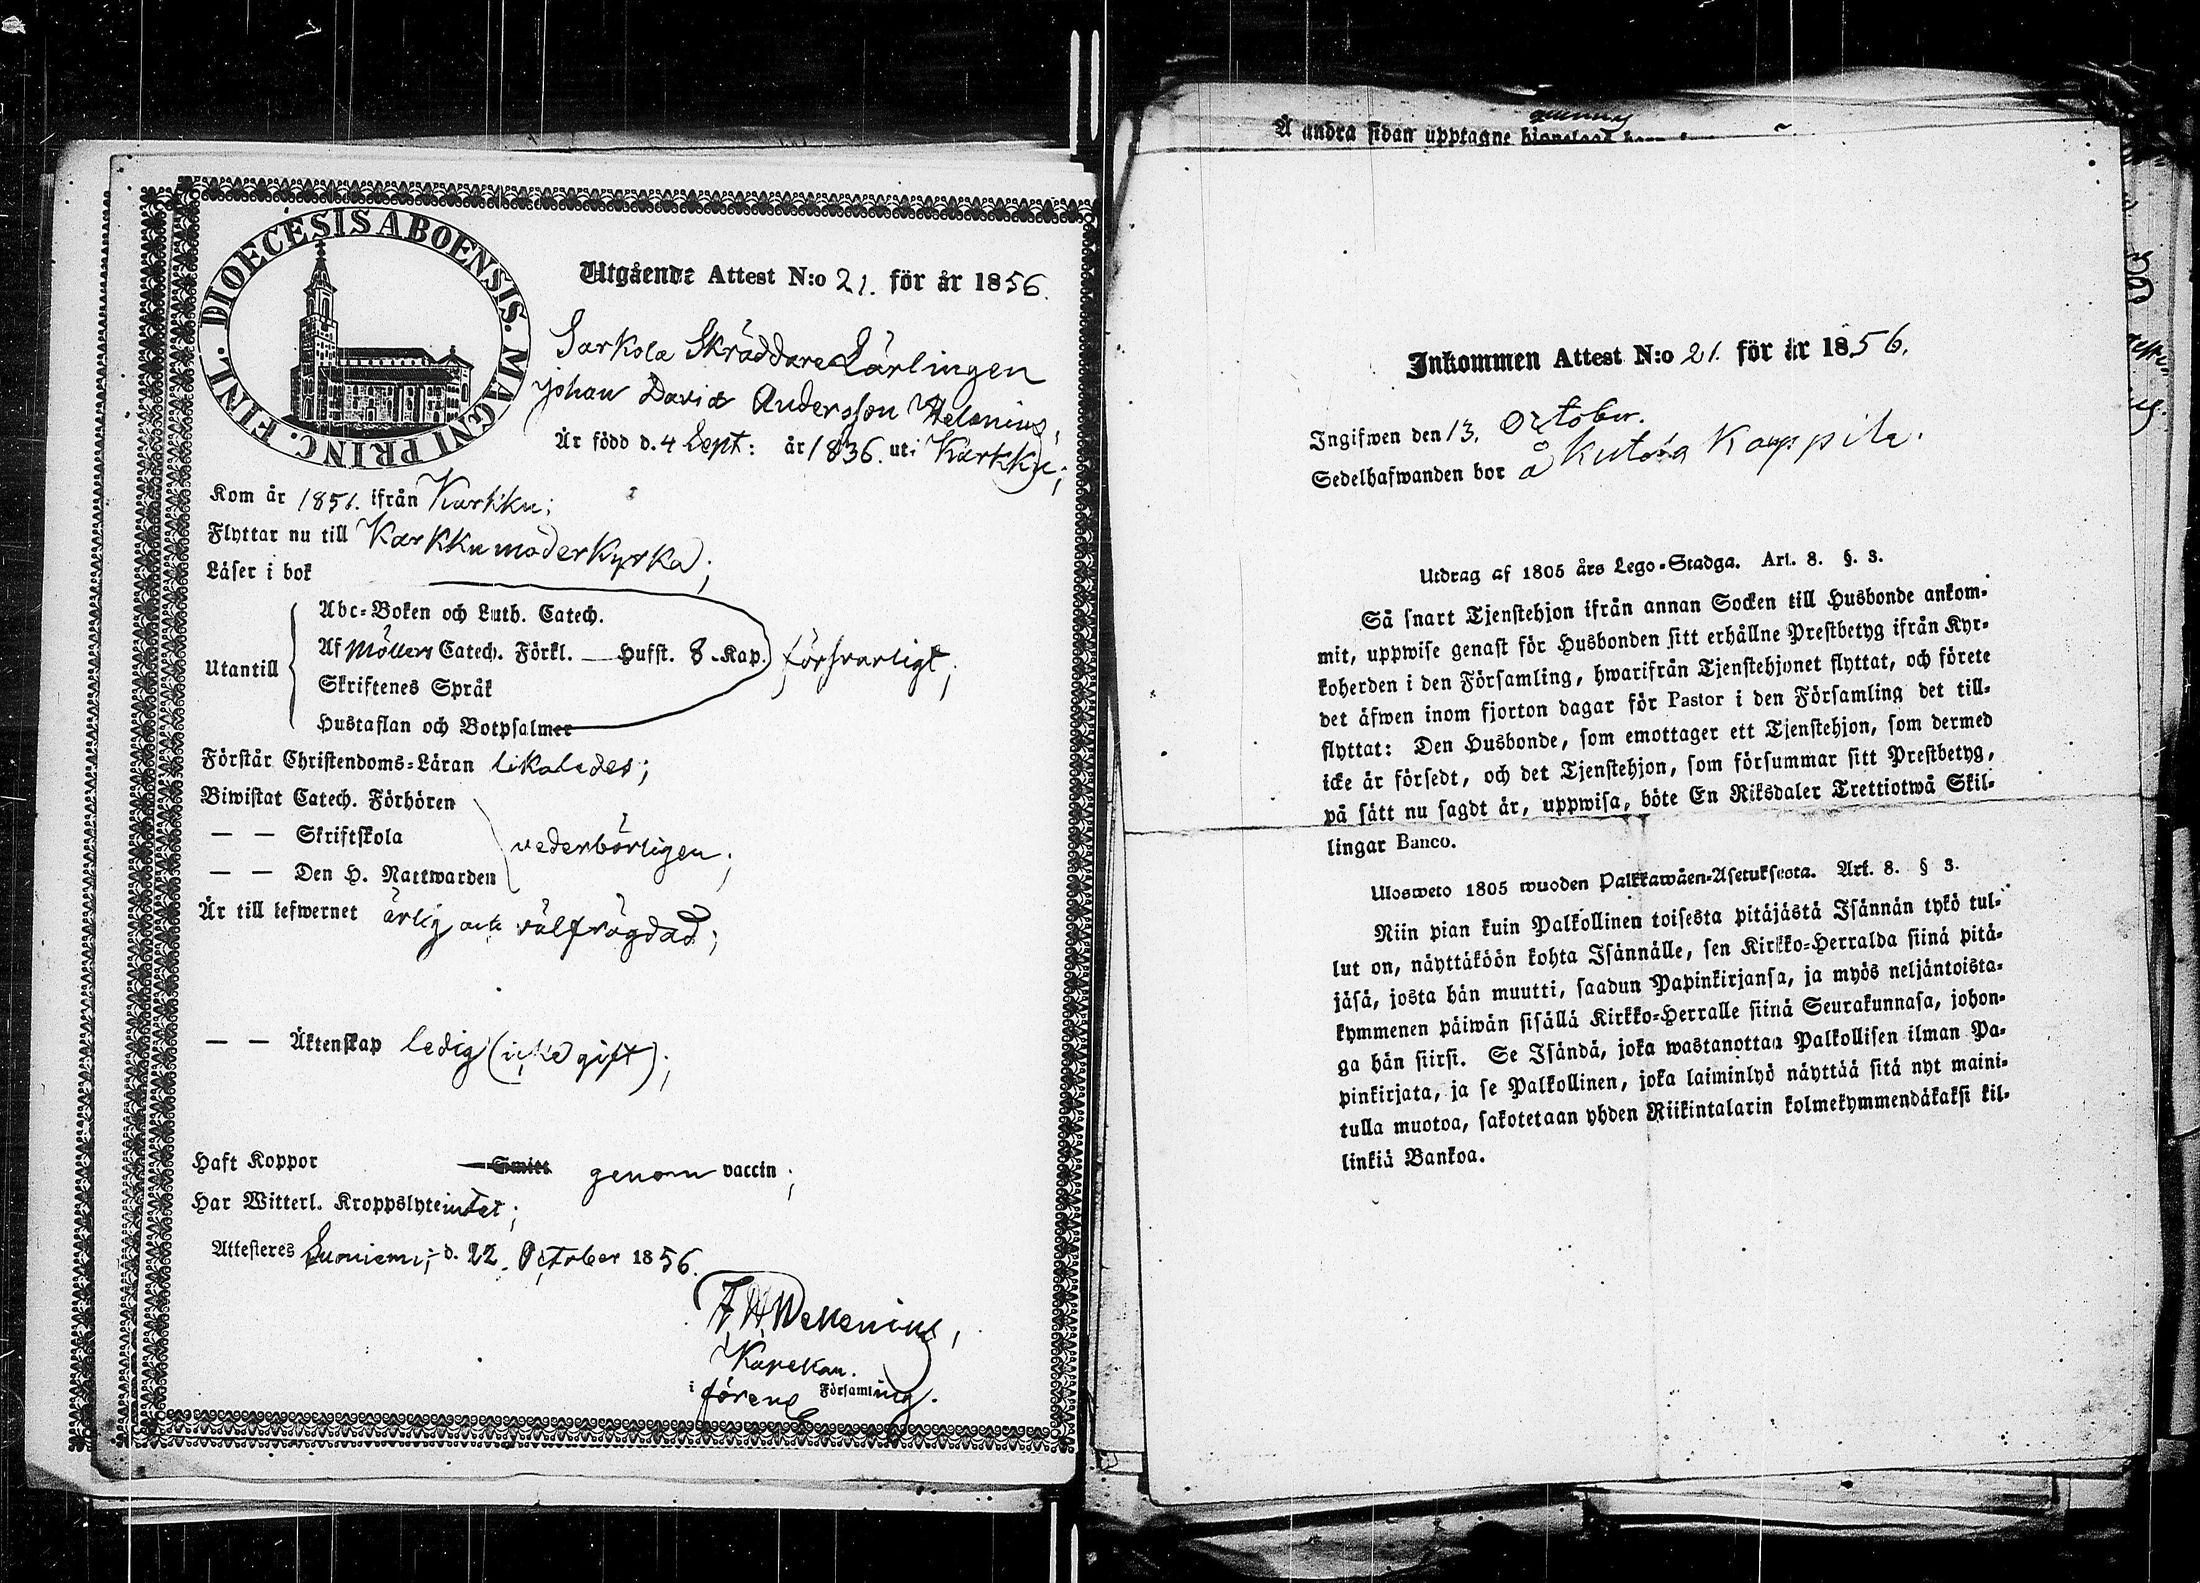 DIOECESIS ABOENSIS. MAGNI PRINC. FINL.
Utgående Attest N:o 21. för år 1856.
Sarkola Skräddare Lärlingen
Johan David Andersson Helenius,
Är född d. 4 Sept: år 1836. uti Karkku;
Kom år 1851. ifrån Karkku;
Flyttar nu till Karkku moderkyrka;
Läser i bok
Utantill
Abc-Boken och Luth. Catech.
Af Möllers Catech. Förkl. — Hufst. 8 - Kap. försvarligt;
Skriftenes Språk
Hustaflan och Botpsalmer
Förstår Christendoms-Läran likaledes;
Biwistat Catech. Förhören
— — Skriftskola vederbörligen;
— — Den H. Nattwarden
Är till lefwernet ärlig och välfrägdad;
— — Äktenskap ledig (icke gift);
Haft Koppor Smitt genom vaccin;
Har Witterl. Kroppslyte intet;
Attesteras Suoniemi; d. 22. October 1856.
Kapellan.
i förene Församling.
Å andra sidan upptagne
Inkommen Attest N:o 21. för år 1856.
Ingifwen den 13. October.
Sedelhafwanden bor å
Utdrag af 1805 års Lego-Stadga. Art. 8. §. 3.
Så snart Tjenstehjon ifrån annan Socken till Husbonde ankom-
mit, uppwise genast för Husbonden sitt erhållne Prestbetyg ifrån Kyr-
koherden i den Församling, hwarifrån Tjenstehjonet flyttat, och förete
det äfwen inom fjorton dagar för Pastor i den Församling det till-
flyttat: Den Husbonde, som emottager ett Tjenstehjon, som dermed
icke är försedt, och det Tjenstehjon, som försummar sitt Prestbetyg,
på sätt nu sagdt är, uppwisa, böte En Riksdaler Trettiotwå Skil-
lingar Banco.
Ulosweto 1805 wuoden Palkkawäen-Asetuksesta. Art. 8. § 3.
Niin pian kuin Palkollinen toisesta pitäjästä Isännän tykö tul-
lut on, näyttäköön kohta Isännälle, sen Kirkko-Herralda siinä pitä-
jäsä, josta hän muutti, saadun Papinkirjansa, ja myös neljäntoista-
kymmenen päiwän sisällä Kirkko-Herralle siinä Seurakunnasa, johon-
ga hän siirsi. Se Isändä, joka wastanottaa Palkollisen ilman Pa-
pinkirjata, ja se Palkollinen, joka laiminlyö näyttää sitä nyt maini-
tulla muotoa, sakotetaan yhden Riikintalarin kolmekymmendäkaksi kil-
linkiä Bankoa.